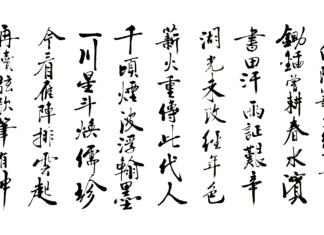 鋤曾耕春水濱
書田汗雨証艱辛
湖光未改經年色
薪火重傳此代人
千頃煙波浮翰墨
一川星斗煥儒珍
今看雁陣排雲起
再續弦歌筆有神